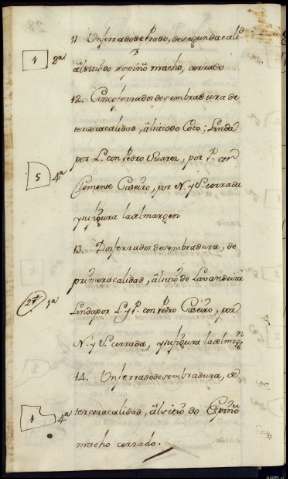 11. Un ferrado de trigo, de segunda calid.
1 2ª
al sitio do Espiño macho, cerrado
12. Cinco ferrados de sembradura de
tercera calidad, al sitio do Coto; Linda
por L. con Pedro Suarez, por P. con
5 4ª
Clemente Caseiro, por N. y S. cerrado
y su figura la al margen
13. ferrados de sembradura, de
primera calidad, al sitio de Lavandeira
1ª
Linda por L. y P. con Pedro Caseiro, por
N. y S. cerrada, y su figura la al margen
14. Un ferrado de sembradura, de
1 4ª
tercera calidad, al sitio do Espiño
macho cerrado.